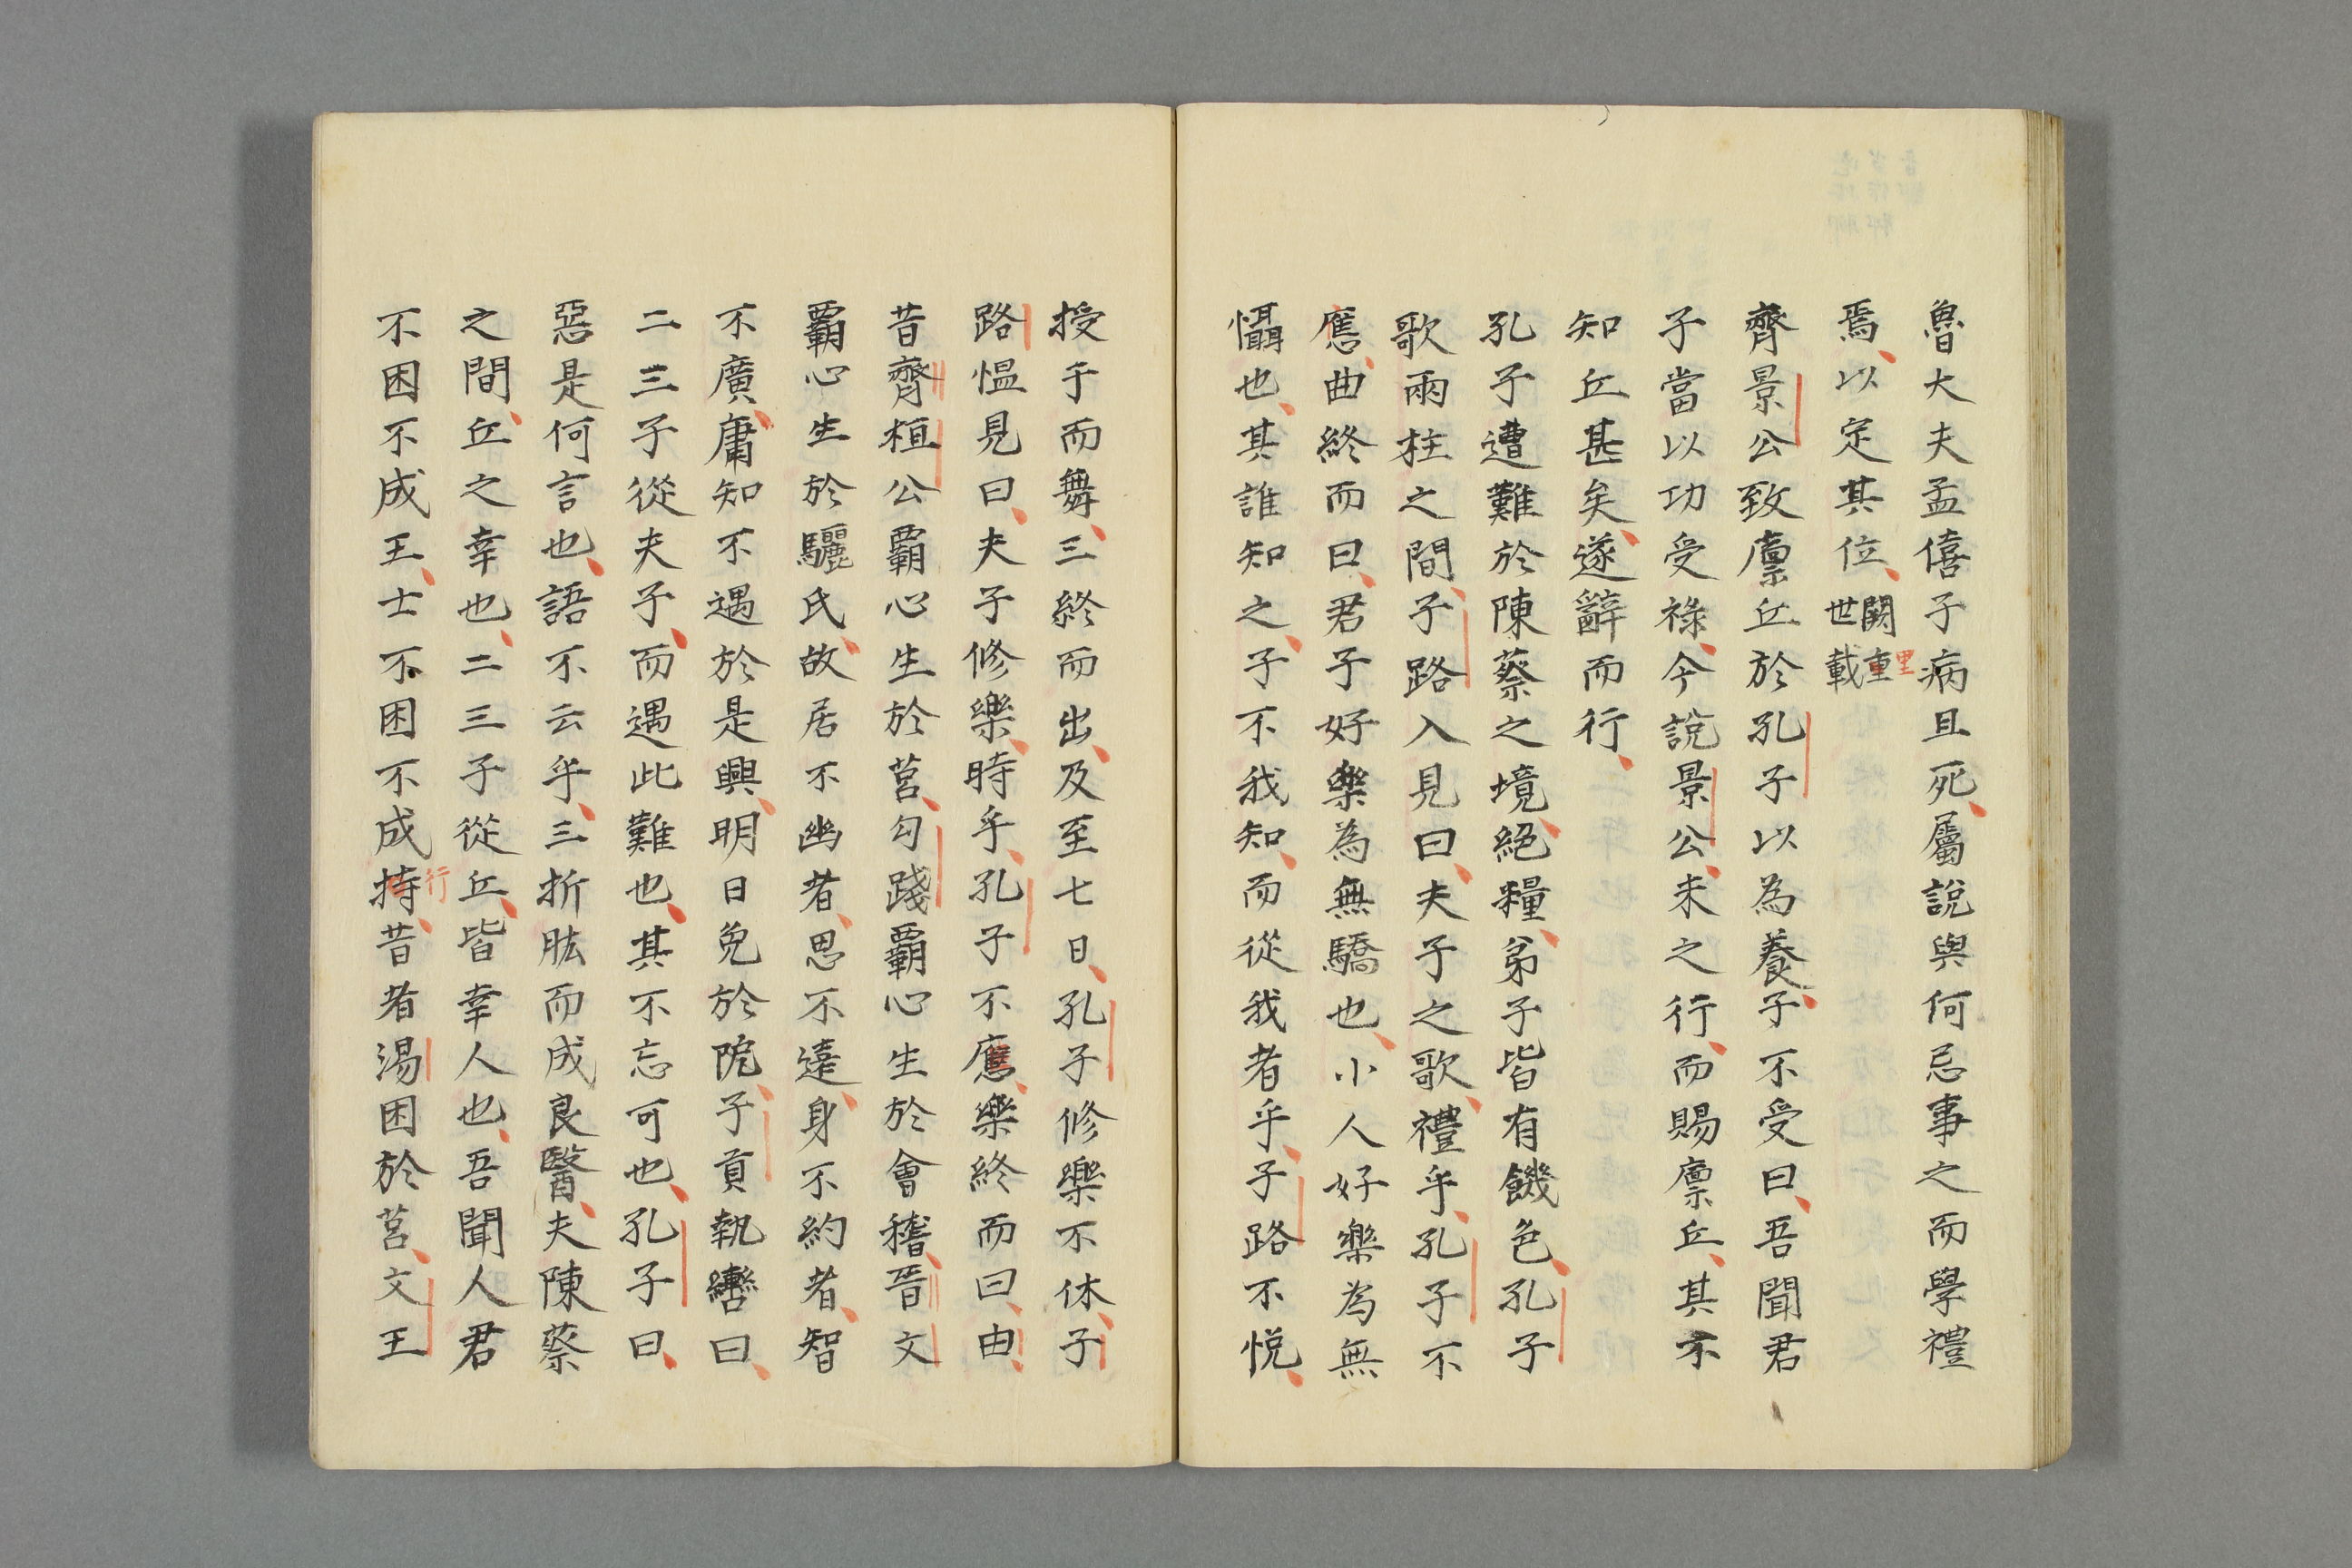 魯大夫孟僖子病且死屬說與何忌事之而學禮
焉以定其位闕里世載
齊景公致廩丘於孔子以為養子不受曰吾聞君
子當以功受祿今說景公未之行而賜廩丘其不
知丘甚矣遂辭而行
孔子遭難於陳蔡之境絕糧弟子皆有饑色孔子
歌兩柱之間子路入見曰夫子之歌禮乎孔子不
應曲終而曰君子好樂為無驕也小人好樂為無
懾也其誰知之子不我知而從我者乎子路不悅
授干而舞三終而出及至七日孔子修樂不休子
路慍見曰夫子修樂時乎孔子不應樂終而曰由
昔齊桓公覇心生於莒勾踐覇心生於會稽晉文
覇心生於驪氏故居不幽者思不遠身不約者智
不廣庸知不遇於是興明日免於阨子貢執轡曰
二三子從夫子而遇此難也其不忘可也孔子曰
惡是何言也語不云乎三折肱而成良醫夫陳蔡
之間丘之幸也二三子從丘皆幸人也吾聞人君
不困不成王士不困不成行昔者湯困於莒文王